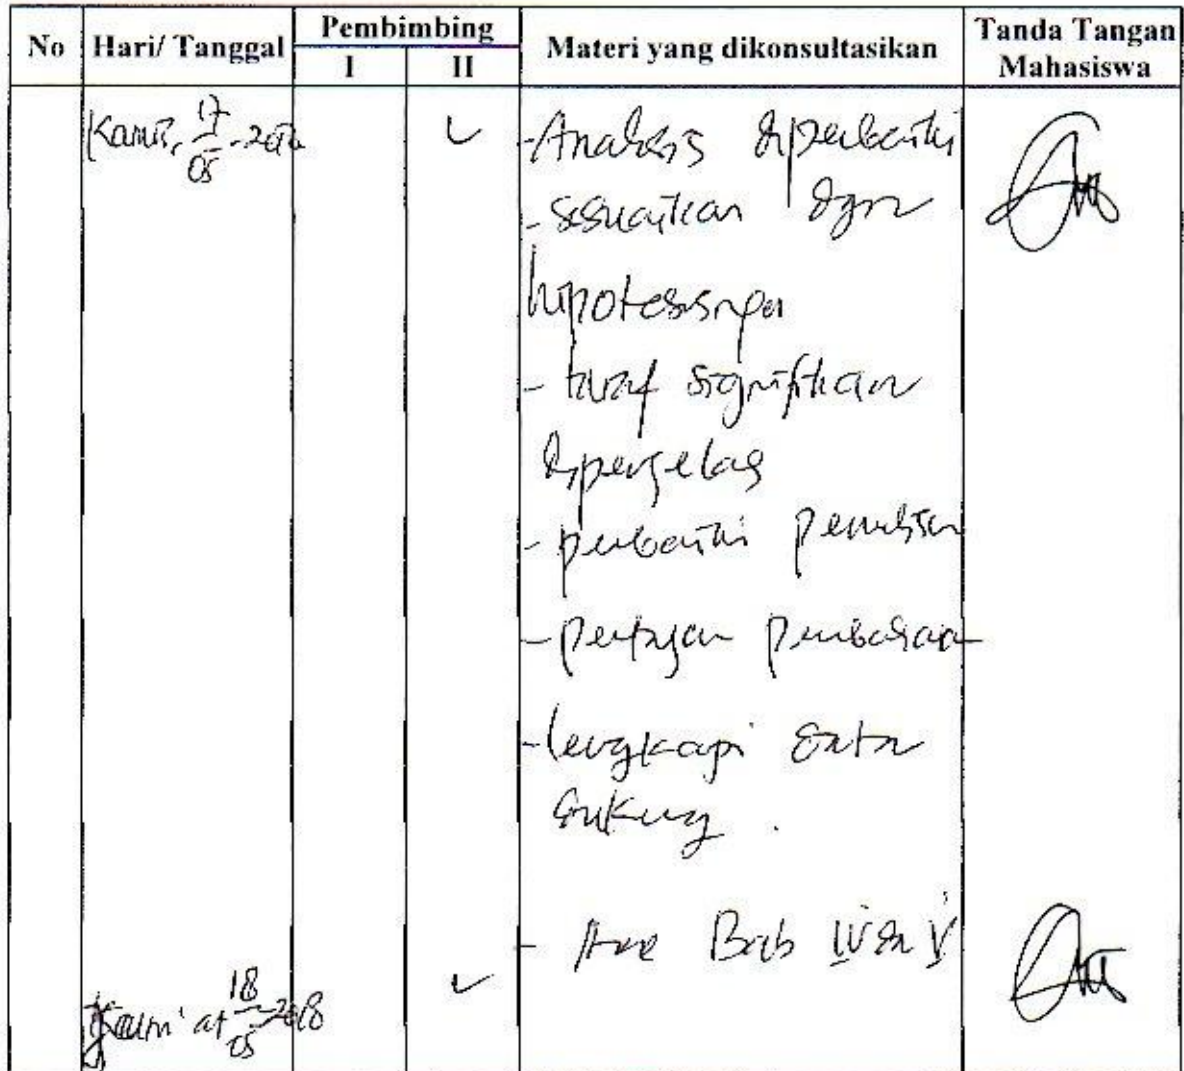 No Hari/ Tanggal Pembimbing Materi yang dikonsultasikan Tanda Tangan Mahasiswa
I II
Kamis, 17/05-2018 ✓ - Analisis diperbaiki
- sesuaikan dgn
hipotesisnya
- taraf signifikan
diperjelas
- perbaiki penulisan
- pertajam pembahasan
- lengkapi data
dukung.
- Acc Bab IV & V
Jum'at 18/05-2018 ✓